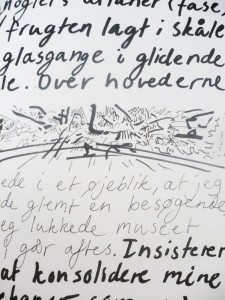 nøglers altaner (fase,
frugten lagt i skåle
glasgange i glidende
le. Over hovederne
ede i et øjeblik, at jeg
de glemt en besøgende
eg lukkede museet
i går aftes. Insisterer
at konsolidere mine